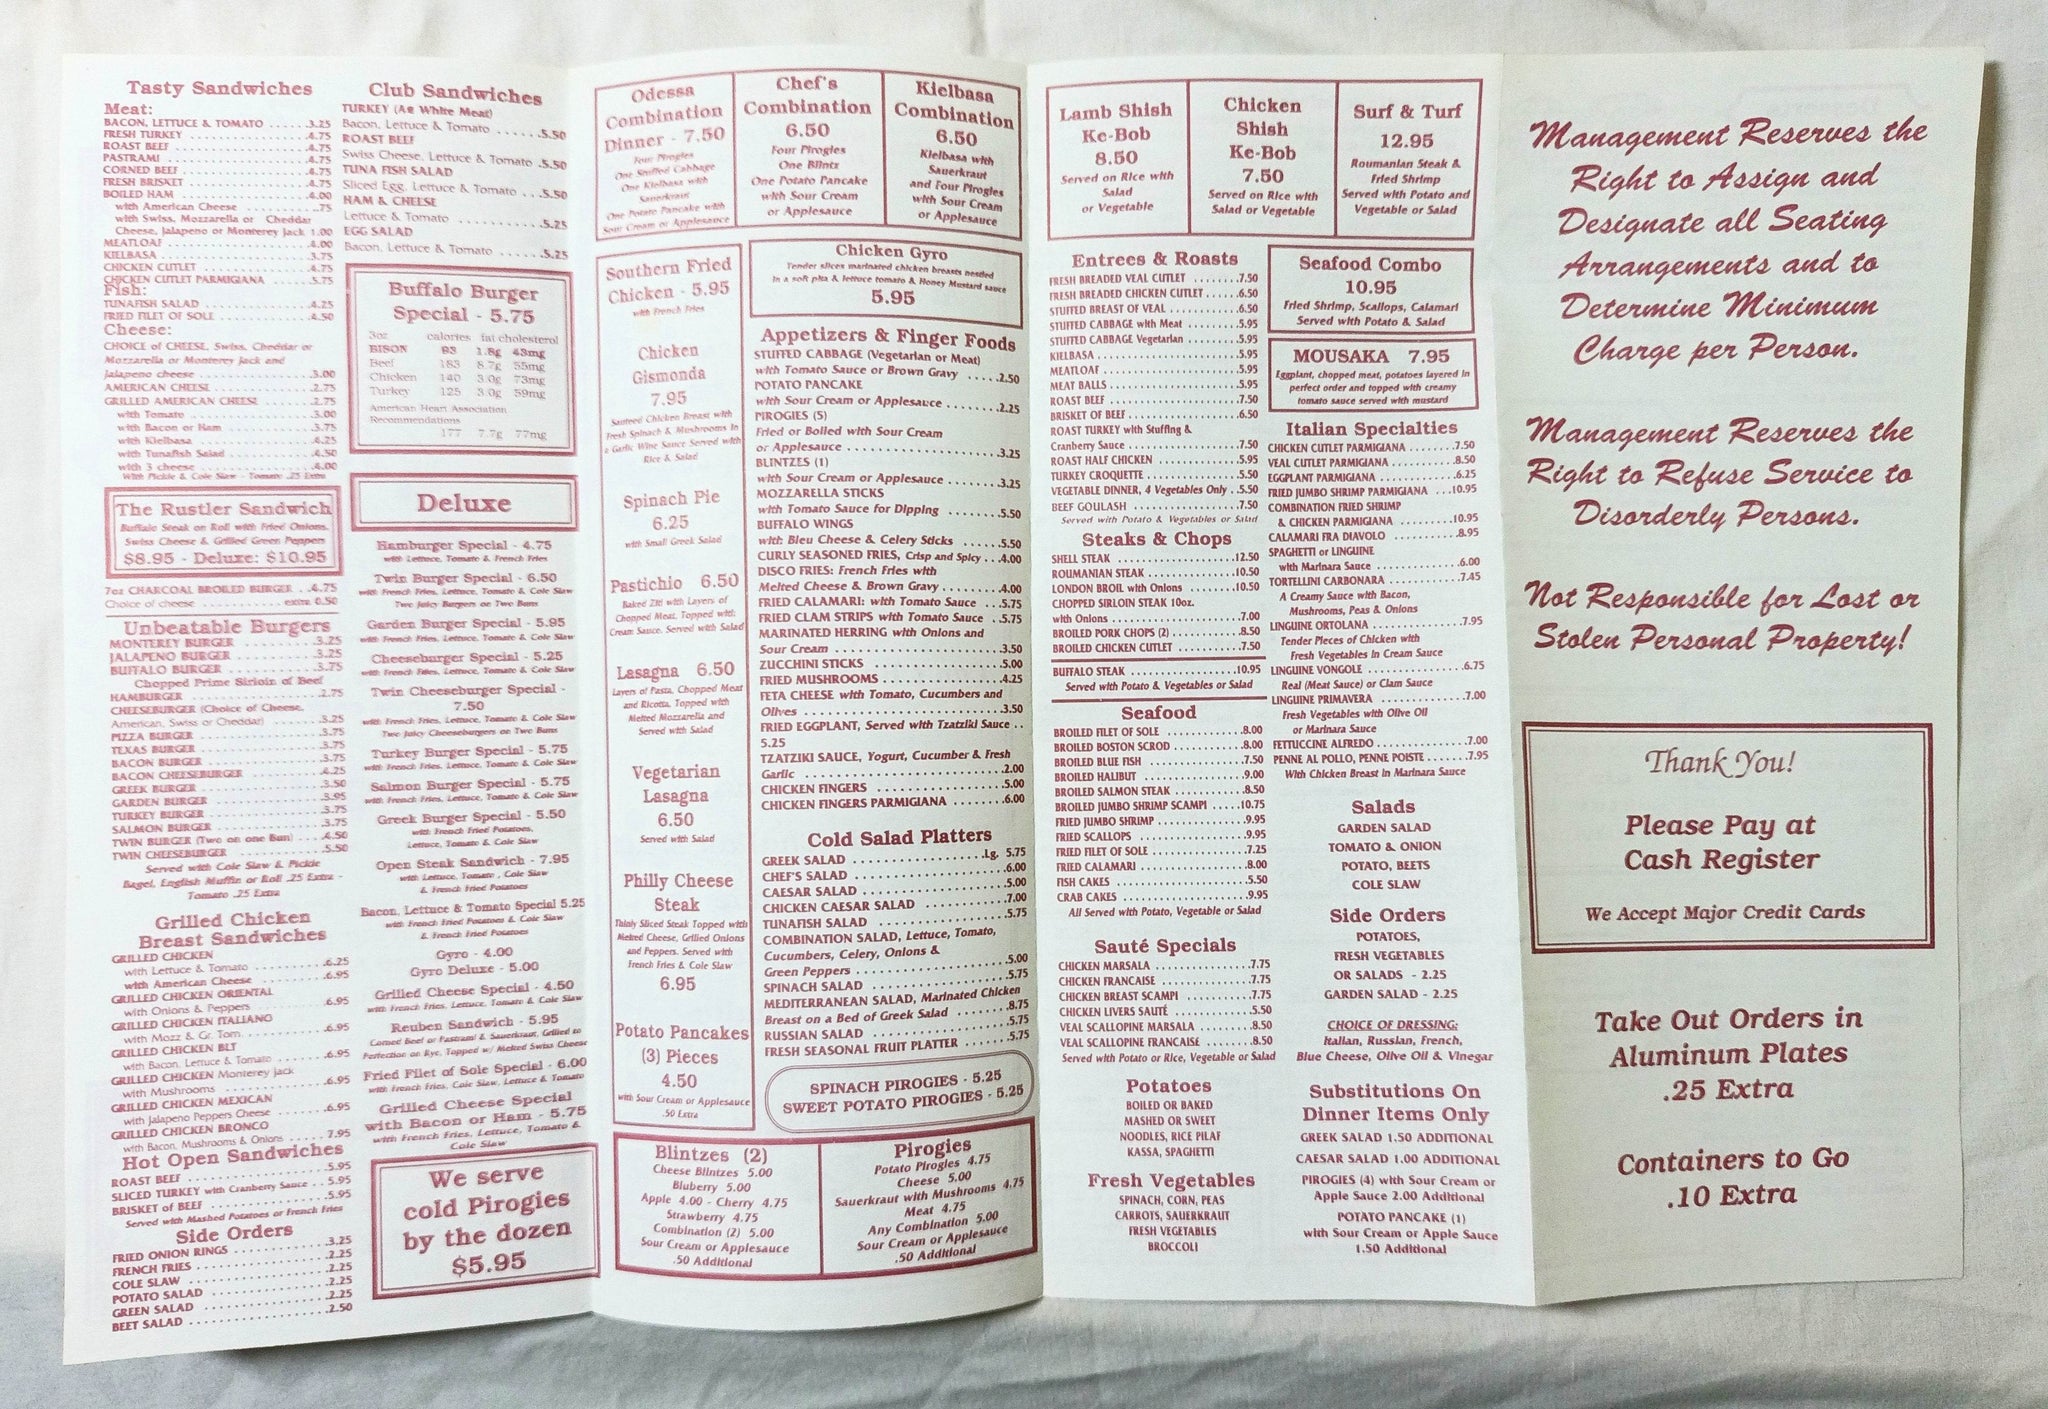 Tasty Sandwiches
Meat:
BACON, LETTUCE & TOMATO ......3.25
FRESH TURKEY .................4.75
ROAST BEEF ...................4.75
PASTRAMI .....................4.75
CORNED BEEF ..................4.75
FRESH BRISKET ................4.75
BOILED HAM ...................4.00
with American Cheese ..........75
with Swiss, Mozzarella or Cheddar
Cheese, Jalapeno or Monterey Jack 1.00
MEATLOAF .....................4.00
KIELBASA .....................3.75
CHICKEN CUTLET ...............4.75
CHICKEN CUTLET PARMIGIANA ....5.75
Fish:
TUNAFISH SALAD ...............4.25
FRIED FILET OF SOLE ..........4.50
Cheese:
CHOICE of CHEESE, Swiss, Cheddar or
Mozzarella or Monterey Jack and
Jalapeno cheese ..............3.00
AMERICAN CHEESE ..............2.75
GRILLED AMERICAN CHEESE ......2.75
with Tomato ..................3.00
with Bacon or Ham ............3.75
with Kielbasa ................4.25
with Tunafish Salad ..........4.50
with 3 cheese ................4.00
With Pickle & Cole Slaw - Tomato .25 Extra
The Rustler Sandwich
Buffalo Steak on Roll with Fried Onions,
Swiss Cheese & Grilled Green Peppers
$8.95 - Deluxe: $10.95
7oz CHARCOAL BROILED BURGER ..4.75
Choice of cheese ........extra 0.50
Unbeatable Burgers
MONTEREY BURGER ..............3.25
JALAPENO BURGER ..............3.25
BUFFALO BURGER ...............3.75
Chopped Prime Sirloin of Beef
HAMBURGER ....................2.75
CHEESEBURGER (Choice of Cheese,
American, Swiss or Cheddar) ..3.25
PIZZA BURGER .................3.75
TEXAS BURGER .................3.75
BACON BURGER .................3.75
BACON CHEESEBURGER ...........4.25
GREEK BURGER .................3.50
GARDEN BURGER ................3.95
TURKEY BURGER ................3.75
SALMON BURGER ................3.75
TWIN BURGER (Two on one Bun) .4.50
TWIN CHEESEBURGER ............5.50
Served with Cole Slaw & Pickle
Bagel, English Muffin or Roll .25 Extra -
Tomato .25 Extra
Grilled Chicken
Breast Sandwiches
GRILLED CHICKEN
with Lettuce & Tomato ........6.25
with American Cheese .........6.95
GRILLED CHICKEN ORIENTAL
with Onions & Peppers ........6.95
GRILLED CHICKEN ITALIANO
with Mozz & Gr. Tom. .........6.95
GRILLED CHICKEN BLT
with Bacon, Lettuce & Tomato .6.95
GRILLED CHICKEN Monterey jack
with Mushrooms ...............6.95
GRILLED CHICKEN MEXICAN
with Jalapeno Peppers Cheese .6.95
GRILLED CHICKEN BRONCO
with Bacon, Mushrooms & Onions .....7.95
Hot Open Sandwiches
ROAST BEEF ...................5.95
SLICED TURKEY with Cranberry Sauce ..5.95
BRISKET of BEEF ..............5.95
Served with Mashed Potatoes or French Fries
Side Orders
FRIED ONION RINGS ............3.25
FRENCH FRIES .................2.25
COLE SLAW ....................2.25
POTATO SALAD .................2.25
GREEN SALAD ..................2.25
BEET SALAD ...................2.50
Club Sandwiches
TURKEY (All White Meat)
Bacon, Lettuce & Tomato ......5.50
ROAST BEEF
Swiss Cheese, Lettuce & Tomato .5.50
TUNA FISH SALAD
Sliced Egg, Lettuce & Tomato ...5.50
HAM & CHEESE
Lettuce & Tomato .............5.25
EGG SALAD
Bacon, Lettuce & Tomato ......5.25
Buffalo Burger
Special - 5.75
3oz calories fat cholesterol
BISON 93 1.8g 43mg
Beef 183 8.7g 55mg
Chicken 140 3.0g 73mg
Turkey 125 3.0g 59mg
American Heart Association
Recommendations
177 7.7g 77mg
Deluxe
Hamburger Special - 4.75
with Lettuce, Tomato & French Fries
Twin Burger Special - 6.50
with French Fries, Lettuce, Tomato & Cole Slaw
Two Juicy Burgers on Two Buns
Garden Burger Special - 5.95
with French Fries, Lettuce, Tomato & Cole Slaw
Cheeseburger Special - 5.25
with French Fries, Lettuce, Tomato & Cole Slaw
Twin Cheeseburger Special -
7.50
with French Fries, Lettuce, Tomato & Cole Slaw
Two Juicy Cheeseburgers on Two Buns
Turkey Burger Special - 5.75
with French Fries, Lettuce, Tomato & Cole Slaw
Salmon Burger Special - 5.75
with French Fries, Lettuce, Tomato & Cole Slaw
Greek Burger Special - 5.50
with French Fried Potatoes,
Lettuce, Tomato & Cole Slaw
Open Steak Sandwich - 7.95
with Lettuce, Tomato, Cole Slaw
& French Fried Potatoes
Bacon, Lettuce & Tomato Special 5.25
with French Fried Potatoes & Cole Slaw
& French Fried Potatoes
Gyro - 4.00
Gyro Deluxe - 5.00
Grilled Cheese Special - 4.50
with French Fries, Lettuce, Tomato & Cole Slaw
Reuben Sandwich - 5.95
Corned Beef or Pastrami & Sauerkraut, Grilled to
Perfection on Rye, Topped w/ Melted Swiss Cheese
Fried Filet of Sole Special - 6.00
with French Fries, Cole Slaw, Lettuce & Tomato
Grilled Cheese Special
with Bacon or Ham - 5.75
with French Fries, Lettuce, Tomato &
Cole Slaw
We serve
cold Pirogies
by the dozen
$5.95
Odessa
Combination
Dinner - 7.50
Four Pirogies
One Stuffed Cabbage
One Kielbasa with
Sauerkraut
One Potato Pancake with
Sour Cream or Applesauce
Chef's
Combination
6.50
Four Pirogies
One Blintz
One Potato Pancake
with Sour Cream
or Applesauce
Kielbasa
Combination
6.50
Kielbasa with
Sauerkraut
and Four Pirogies
with Sour Cream
or Applesauce
Southern Fried
Chicken - 5.95
with French Fries
Chicken
Gismonda
7.95
Sauteed Chicken Breast with
Fresh Spinach & Mushrooms In
a Garlic Wine Sauce Served with
Rice & Salad
Spinach Pie
6.25
with Small Greek Salad
Pastichio 6.50
Baked Ziti with Layers of
Chopped Meat, Topped with
Cream Sauce. Served with Salad
Lasagna 6.50
Layers of Pasta, Chopped Meat
and Ricotta, Topped with
Melted Mozzarella and
Served with Salad
Vegetarian
Lasagna
6.50
Served with Salad
Philly Cheese
Steak
Thinly Sliced Steak Topped with
Melted Cheese, Grilled Onions
and Peppers. Served with
French Fries & Cole Slaw
6.95
Potato Pancakes
(3) Pieces
4.50
with Sour Cream or Applesauce
.50 Extra
Chicken Gyro
Tender slices marinated chicken breasts nestled
in a soft pita & lettuce tomato & Honey Mustard sauce
5.95
Appetizers & Finger Foods
STUFFED CABBAGE (Vegetarian or Meat)
with Tomato Sauce or Brown Gravy .....2.50
POTATO PANCAKE
with Sour Cream or Applesauce ........2.25
PIROGIES (5)
Fried or Boiled with Sour Cream
or Applesauce ................3.25
BLINTZES (1)
with Sour Cream or Applesauce ........3.25
MOZZARELLA STICKS
with Tomato Sauce for Dipping ........5.50
BUFFALO WINGS
with Bleu Cheese & Celery Sticks .....5.50
CURLY SEASONED FRIES, Crisp and Spicy ...4.00
DISCO FRIES: French Fries with
Melted Cheese & Brown Gravy ..........4.00
FRIED CALAMARI: with Tomato Sauce ...5.75
FRIED CLAM STRIPS with Tomato Sauce ..5.75
MARINATED HERRING with Onions and
Sour Cream ...................3.50
ZUCCHINI STICKS ..............5.00
FRIED MUSHROOMS ..............4.25
FETA CHEESE with Tomato, Cucumbers and
Olives .......................3.50
FRIED EGGPLANT, Served with Tzatziki Sauce ..
5.25
TZATZIKI SAUCE, Yogurt, Cucumber & Fresh
Garlic .......................2.00
CHICKEN FINGERS ..............5.00
CHICKEN FINGERS PARMIGIANA ...6.00
Cold Salad Platters
GREEK SALAD ..............Lg. 5.75
CHEF'S SALAD .................6.00
CAESAR SALAD .................5.00
CHICKEN CAESAR SALAD .........7.00
TUNAFISH SALAD ...............5.75
COMBINATION SALAD, Lettuce, Tomato,
Cucumbers, Celery, Onions &
Green Peppers ................5.00
SPINACH SALAD ................5.75
MEDITERRANEAN SALAD, Marinated Chicken
Breast on a Bed of Greek Salad .......8.75
RUSSIAN SALAD ................5.75
FRESH SEASONAL FRUIT PLATTER .......5.75
SPINACH PIROGIES - 5.25
SWEET POTATO PIROGIES - 5.25
Blintzes (2)
Cheese Blintzes 5.00
Bluberry 5.00
Apple 4.00 - Cherry 4.75
Strawberry 4.75
Combination (2) 5.00
Sour Cream or Applesauce
.50 Additional
Pirogies
Potato Pirogies 4.75
Cheese 5.00
Sauerkraut with Mushrooms 4.75
Meat 4.75
Any Combination 5.00
Sour Cream or Applesauce
.50 Additional
Lamb Shish
Ke-Bob
8.50
Served on Rice with
Salad
or Vegetable
Chicken
Shish
Ke-Bob
7.50
Served on Rice with
Salad or Vegetable
Surf & Turf
12.95
Roumanian Steak &
Fried Shrimp
Served with Potato and
Vegetable or Salad
Entrees & Roasts
FRESH BREADED VEAL CUTLET ....7.50
FRESH BREADED CHICKEN CUTLET ......6.50
STUFFED BREAST OF VEAL .......6.50
STUFFED CABBAGE with Meat ....5.95
STUFFED CABBAGE Vegetarian ...5.95
KIELBASA .....................5.95
MEATLOAF .....................5.95
MEAT BALLS ...................5.95
ROAST BEEF ...................7.50
BRISKET OF BEEF ..............6.50
ROAST TURKEY with Stuffing &
Cranberry Sauce ..............7.50
ROAST HALF CHICKEN ...........5.95
TURKEY CROQUETTE .............5.50
VEGETABLE DINNER, 4 Vegetables Only ..5.50
BEEF GOULASH .................7.50
Served with Potato & Vegetables or Salad
Steaks & Chops
SHELL STEAK ..................12.50
ROUMANIAN STEAK ..............10.50
LONDON BROIL with Onions .....10.50
CHOPPED SIRLOIN STEAK 10oz.
with Onions ..................7.00
BROILED PORK CHOPS (2) .......8.50
BROILED CHICKEN CUTLET .......7.50
BUFFALO STEAK ................10.95
Served with Potato & Vegetables or Salad
Seafood
BROILED FILET OF SOLE ........8.00
BROILED BOSTON SCROD .........8.00
BROILED BLUE FISH ............7.50
BROILED HALIBUT ..............9.00
BROILED SALMON STEAK .........8.50
BROILED JUMBO SHRIMP SCAMPI .....10.75
FRIED JUMBO SHRIMP ...........9.95
FRIED SCALLOPS ...............9.95
FRIED FILET OF SOLE ..........7.25
FRIED CALAMARI ...............8.00
FISH CAKES ...................5.50
CRAB CAKES ...................9.95
All Served with Potato, Vegetable or Salad
Sauté Specials
CHICKEN MARSALA ..............7.75
CHICKEN FRANCAISE ............7.75
CHICKEN BREAST SCAMPI ........7.75
CHICKEN LIVERS SAUTÉ .........5.50
VEAL SCALLOPINE MARSALA ......8.50
VEAL SCALLOPINE FRANCAISE ....8.50
Served with Potato or Rice, Vegetable or Salad
Potatoes
BOILED OR BAKED
MASHED OR SWEET
NOODLES, RICE PILAF
KASSA, SPAGHETTI
Fresh Vegetables
SPINACH, CORN, PEAS
CARROTS, SAUERKRAUT
FRESH VEGETABLES
BROCCOLI
Seafood Combo
10.95
Fried Shrimp, Scallops, Calamari
Served with Potato & Salad
MOUSAKA 7.95
Eggplant, chopped meat, potatoes layered in
perfect order and topped with creamy
tomato sauce served with mustard
Italian Specialties
CHICKEN CUTLET PARMIGIANA ....7.50
VEAL CUTLET PARMIGIANA .......8.50
EGGPLANT PARMIGIANA ..........6.25
FRIED JUMBO SHRIMP PARMIGIANA ...10.95
COMBINATION FRIED SHRIMP
& CHICKEN PARMIGIANA .........10.95
CALAMARI FRA DIAVOLO .........8.95
SPAGHETTI or LINGUINE
with Marinara Sauce ..........6.00
TORTELLINI CARBONARA .........7.45
A Creamy Sauce with Bacon,
Mushrooms, Peas & Onions
LINGUINE ORTOLANA ............7.95
Tender Pieces of Chicken with
Fresh Vegetables In Cream Sauce
LINGUINE VONGOLE .............6.75
Real (Meat Sauce) or Clam Sauce
LINGUINE PRIMAVERA ...........7.00
Fresh Vegetables with Olive Oil
or Marinara Sauce
FETTUCCINE ALFREDO ...........7.00
PENNE AL POLLO, PENNE POISTE .......7.95
With Chicken Breast in Marinara Sauce
Salads
GARDEN SALAD
TOMATO & ONION
POTATO, BEETS
COLE SLAW
Side Orders
POTATOES,
FRESH VEGETABLES
OR SALADS - 2.25
GARDEN SALAD - 2.25
CHOICE OF DRESSING:
Italian, Russian, French,
Blue Cheese, Olive Oil & Vinegar
Substitutions On
Dinner Items Only
GREEK SALAD 1.50 ADDITIONAL
CAESAR SALAD 1.00 ADDITIONAL
PIROGIES (4) with Sour Cream or
Apple Sauce 2.00 Additional
POTATO PANCAKE (1)
with Sour Cream or Apple Sauce
1.50 Additional
Management Reserves the
Right to Assign and
Designate all Seating
Arrangements and to
Determine Minimum
Charge per Person.
Management Reserves the
Right to Refuse Service to
Disorderly Persons.
Not Responsible for Lost or
Stolen Personal Property!
Thank You!
Please Pay at
Cash Register
We Accept Major Credit Cards
Take Out Orders in
Aluminum Plates
.25 Extra
Containers to Go
.10 Extra